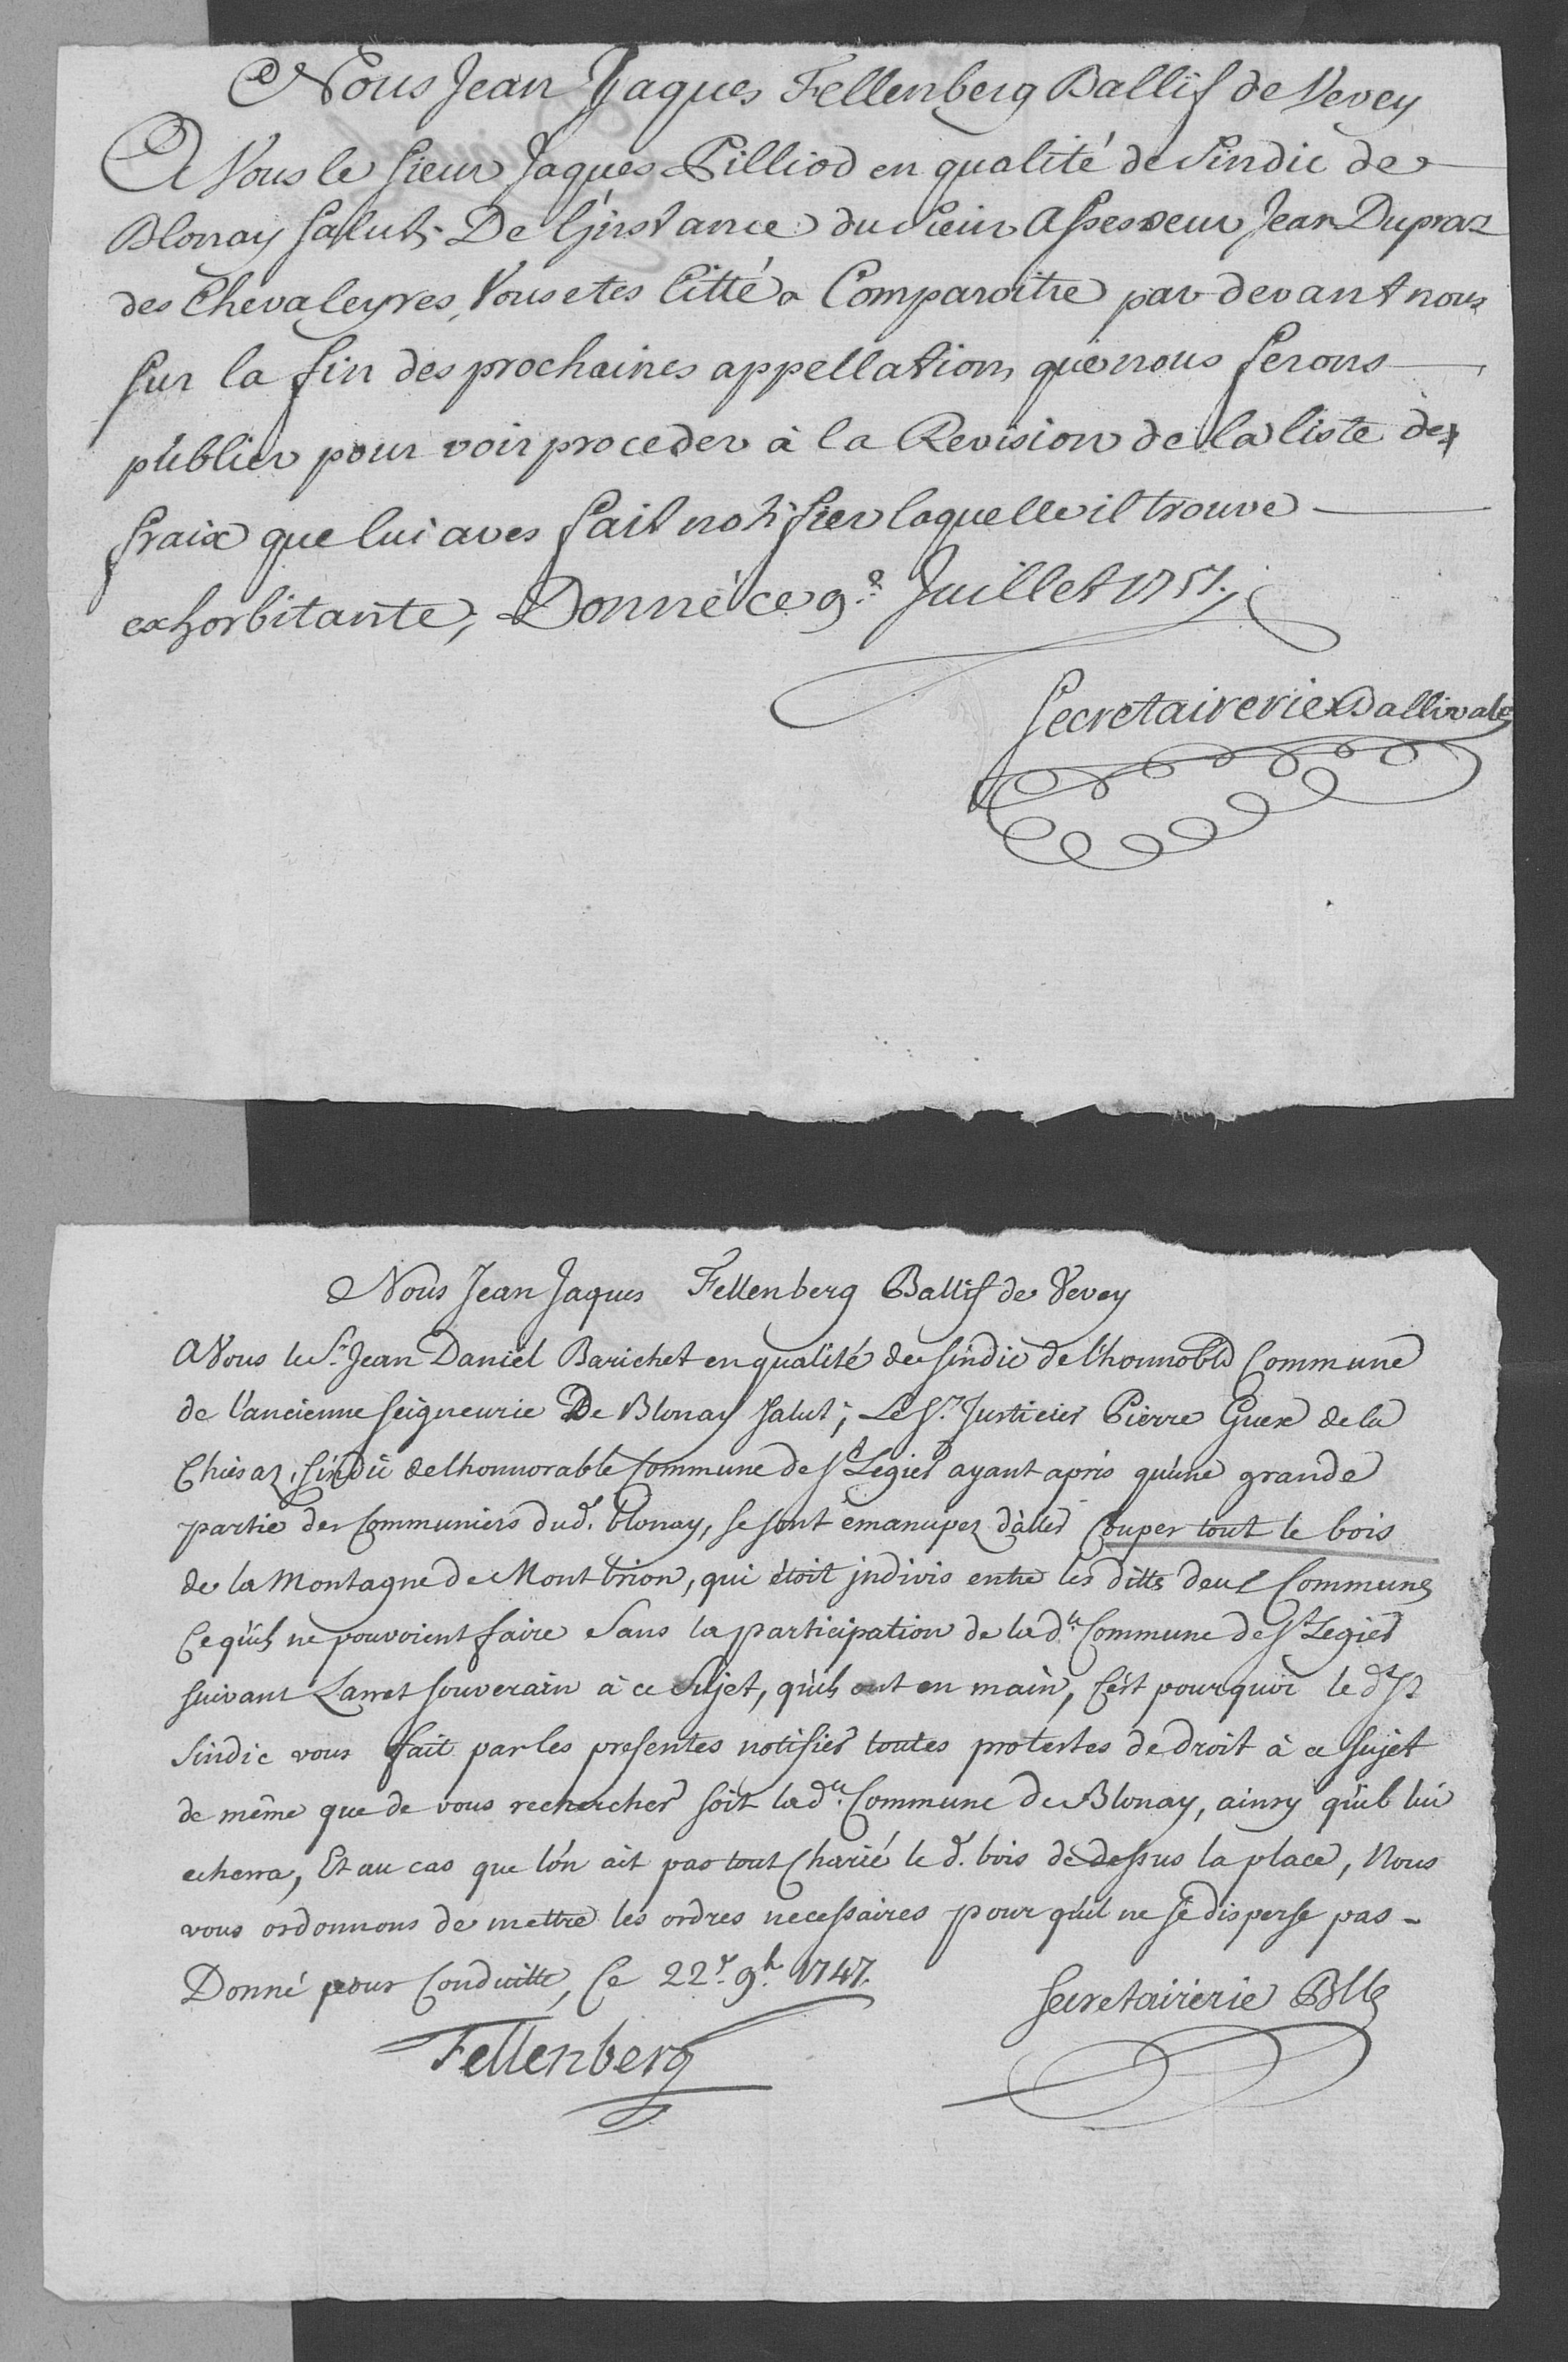 Nous Jean Jaques Fellenberg Ballif de Vevey
A Vous le sieur Jaques Pilliod en qualité de Sindic de
Blonay salut. De L'instance du sieur Assesseur Jean Dupraz
des Chevaleyres, Vous etes Citté a Comparoitre par devant nous
sur la fin des prochaines appellations que nous ferons
publier pour voir proceder à la Revision de la liste des
fraix que lui aves fait notifier laquelle il trouve
exhorbitante, Donné ce 9.e Juillet 1751.
Secretairerie Ballivale
Nous Jean Jaques Fellenberg Ballif de Vevey
A Vous le Sr. Jean Daniel Barichet en qualité de sindic de l'honnoble Commune
de l'ancienne seigneurie De Blonay salut; Le Sr. Justicier Pierre Guex de la
Chiesaz, sindic de lhonnorable Commune de St Legier ayant apris qu'une grande
partie des Communiers dud. blonay, se sont émancipez d'aller Couper tout le bois
de la Montagne de Mont brion, qui étoit indivis entre les dittes deux Communes
Ce qu'ils ne pouvoient faire sans la participation de lad.te Commune de St Legier
suivant Larret souverain à ce sujet, qu'ils ont en main, C'est pourquoi le d. Sr
Sindic vous fait par les presentes notifier toutes protestes de droit à ce sujet
de même que de vous rechercher soit lad.te Commune de Blonay, ainsy qu'il lui
echerra, Et au cas que l'on ait pas tout Charié le d. bois de dessus la place, Nous
vous ordonnons de mettre les ordres necessaires pour qu'il ne se disperse pas -
Donné pour Conduitte, Ce 22.e 9b. 1747.
Secretairerie Blle
Fellenberg